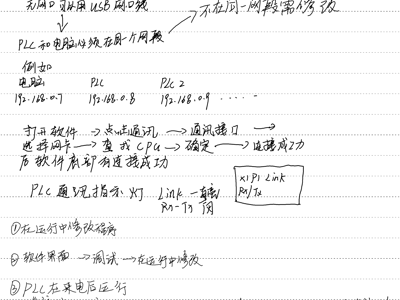 无网口可以用USB网口线
不在同一网段需修改
PLC和电脑必须在同一个网段
例如
电脑 PLC PLC 2
192.168.0.7 192.168.0.8 192.168.0.9 ·····
打开软件 → 点击通讯 → 通讯接口 →
选择网卡 → 查找CPU → 确定 → 连接成功
后软件底部有连接成功
PLC通讯指示灯 Link 一直亮
Rx-Tx 闪
X1P1 Link
Rx/Tx
①在运行中修改程序
②软件界面 → 调试 → 在运行中修改
③PLC在来电后运行